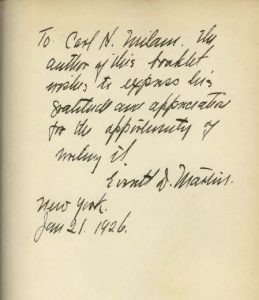 To Carl H. Milam, the
author of this booklet
wishes to express his
gratitude and appreciation
for the opportunity of
writing it.
Everett D. Martin.
New York.
Jan 21. 1926.